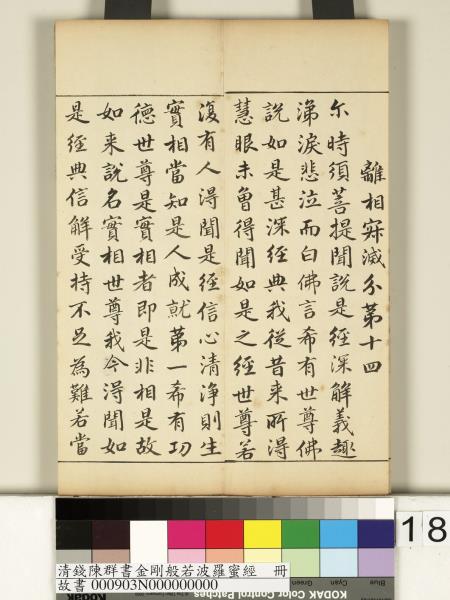 離相寂滅分第十四
尒時須菩提聞說是經深解義趣
涕淚悲泣而白佛言希有世尊佛
說如是甚深經典我從昔來所得
慧眼未曾得聞如是之經世尊若
復有人得聞是經信心清淨則生
實相當知是人成就第一希有功
德世尊是實相者即是非相是故
如來說名實相世尊我今得聞如
是經典信解受持不足為難若當
18
Blue Cyan Green
清錢陳群書金剛般若波羅蜜經 冊
故書 000903N000000000
KODAK Color Control Patches